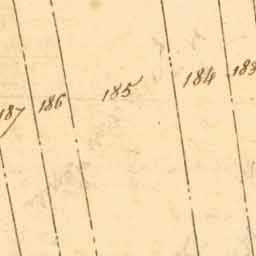 187 186 185 184 183